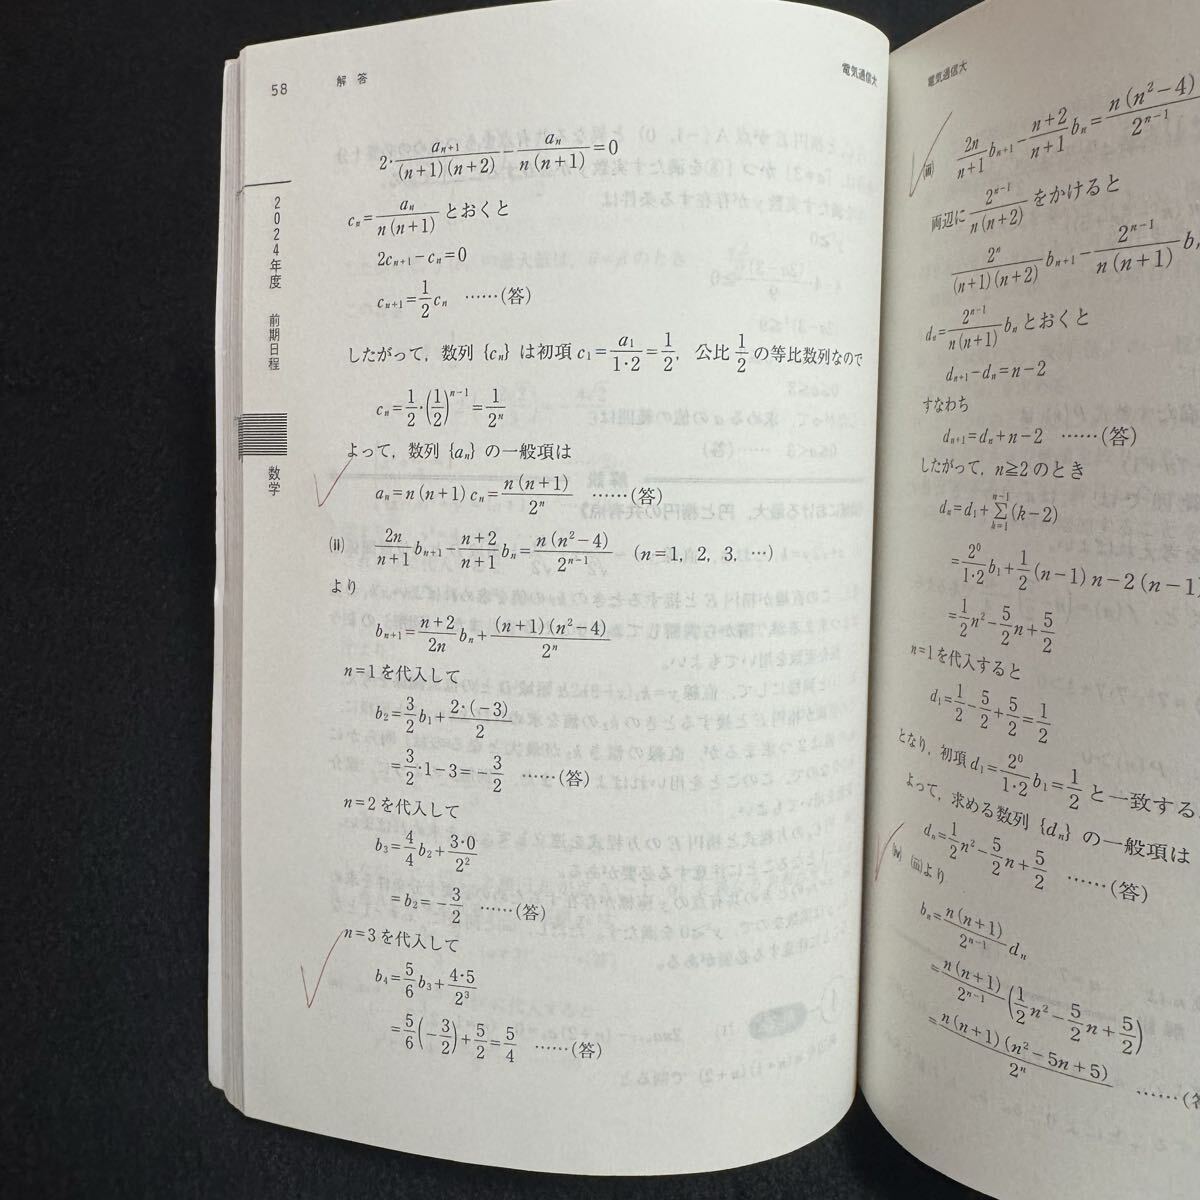 58
解 答
電気通信大
2024年度 前期日程
数学
2・a_{n+1}/((n+1)(n+2)) − a_n/(n(n+1)) = 0
c_n = a_n/(n(n+1)) とおくと
2c_{n+1} − c_n = 0
c_{n+1} = 1/2 c_n ……(答)
したがって，数列 {c_n} は初項 c_1 = a_1/(1・2) = 1/2，公比 1/2 の等比数列なので
c_n = 1/2・(1/2)^{n−1} = 1/2^n
よって，数列 {a_n} の一般項は
a_n = n(n+1)c_n = n(n+1)/2^n ……(答)
(ii) 2n/(n+1) b_{n+1} − (n+2)/(n+1) b_n = n(n²−4)/2^{n−1} (n=1, 2, 3, …)
より
b_{n+1} = (n+2)/2n b_n + (n+1)(n²−4)/2^n
n=1 を代入して
b_2 = 3/2 b_1 + 2・(−3)/2
= 3/2・1 − 3 = −3/2 ……(答)
n=2 を代入して
b_3 = 4/4 b_2 + 3・0/2²
= b_2 = −3/2 ……(答)
n=3 を代入して
b_4 = 5/6 b_3 + 4・5/2³
= 5/6(−3/2) + 5/2 = 5/4 ……(答)
電気通信大
(iii) 2n/(n+1) b_{n+1} − (n+2)/(n+1) b_n = n(n²−4)/2^{n−1}
両辺に 2^{n−1}/(n(n+2)) をかけると
2^n/((n+1)(n+2)) b_{n+1} − 2^{n−1}/(n(n+1)) b_n
d_n = 2^{n−1}/(n(n+1)) b_n とおくと
d_{n+1} − d_n = n−2
すなわち
d_{n+1} = d_n + n−2 ……(答)
したがって，n≧2 のとき
d_n = d_1 + Σ_{k=1}^{n−1}(k−2)
= 2⁰/(1・2) b_1 + 1/2 (n−1)n − 2(n−1)
= 1/2 n² − 5/2 n + 5/2
n=1 を代入すると
d_1 = 1/2 − 5/2 + 5/2 = 1/2
となり，初項 d_1 = 2⁰/(1・2) b_1 = 1/2 と一致する．
よって，求める数列 {d_n} の一般項は
d_n = 1/2 n² − 5/2 n + 5/2 ……(答)
(iv) (iii)より
b_n = n(n+1)/2^{n−1} d_n
= n(n+1)/2^{n−1} (1/2 n² − 5/2 n + 5/2)
= n(n+1)(n²−5n+5)/2^n ……(答